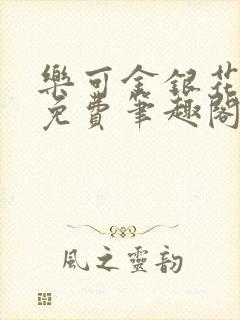 樂可金銀花
免費筆趣閣
風之靈韵